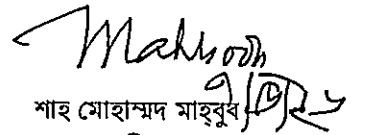 Mahboob
শাহ মোহাম্মদ মাহ্‌বুব